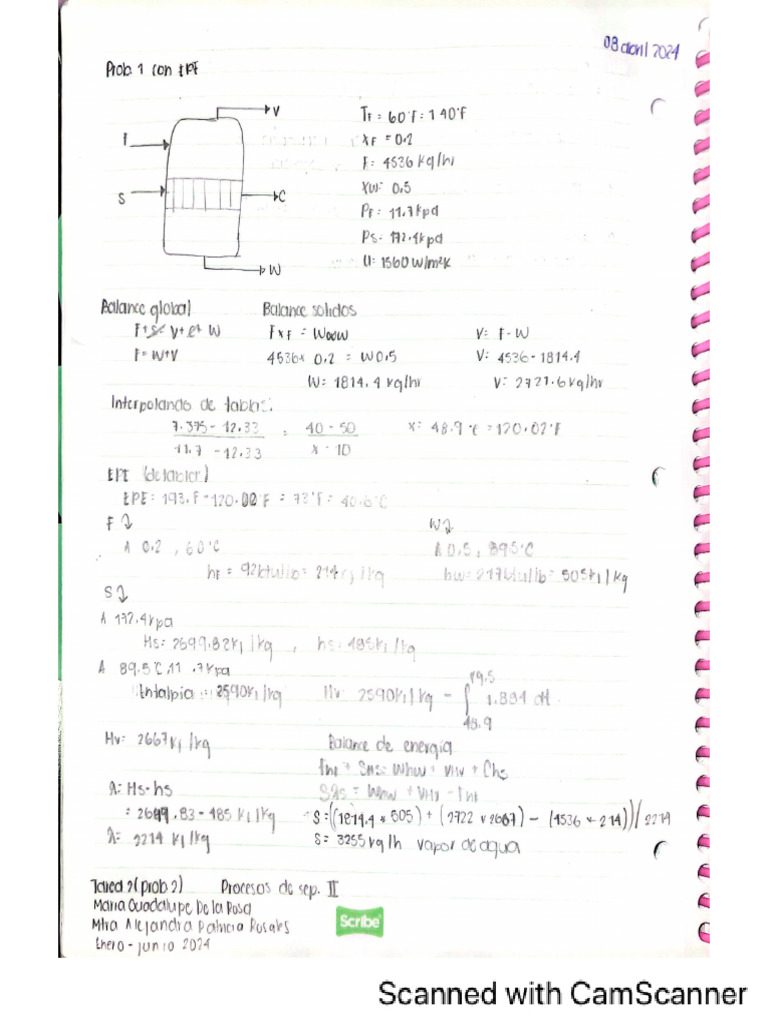 08 abril 2024
Prob. 1 con EPE
V
F
S
C
W
TF = 60°F = 140°F
XF = 0.2
F: 4536 Kg/hr
Xw: 0.5
PF = 11.7 kpa
Ps - 172.4 kpa
U: 1560 W/m²K
Balance global Balance solidos
F+S = V+C+W FXF = W V: F-W
F = W+V 4536 x 0.2 = W0.5 V: 4536 - 1814.4
W: 1814.4 kg/hr V: 2721.6 kg/hr
Interpolando de tablas:
7.375 - 12.33 = 40 - 50 X: 48.9 °C = 120.02°F
11.7 - 12.33 X - 50
EPE (de tablas)
EPE: 193°F - 120.02°F = 73°F = 40.6°C
F W
A 0.2, 60°C A 0.5, 89.5°C
hF = 92 btu/lb = 214 kj/kg hw = 217 btu/lb = 505 kj/kg
S
A 172.4 kpa
Hs = 2699.82 kj/kg, hs = 485 kj/kg
A 89.5°C 11.7 kpa
Entalpia = 2590 kj/kg Hv: 2590 kj/kg - ∫ 1.884 dt
89.5
48.9
Hv: 2667 kj/kg Balance de energia
FhF + SHs = Whw + VHv + Chs
λ: Hs-hs Sλs = Whw + VHv - FhF
= 2699.83 - 485 kj/kg S = ((1814.4 * 505) + (2722 * 2667) - (4536 * 214))/2214
λ = 2214 kj/kg S = 3255 kg/h vapor de agua
Tarea 2 (prob 2) Procesos de sep. II
Maria Guadalupe De la Rosa
Mtra Alejandra Patricia Rosales
Enero - junio 2024
Scribe
Scanned with CamScanner